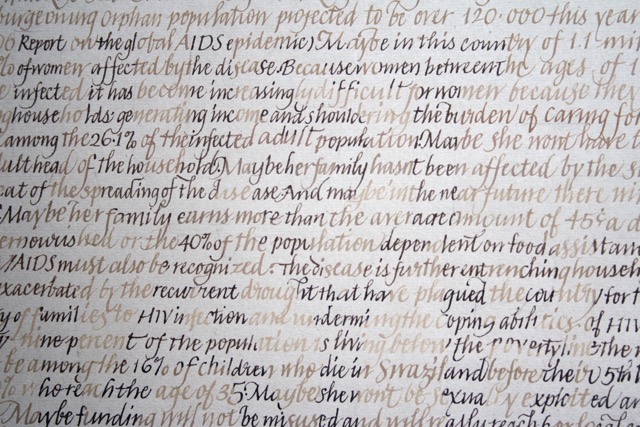 burgeoning orphan population projected to be over 120.000 this year
06 Report on the global AIDS epidemic) Maybe in this country of 1.1 mil
% of women affected by the disease. Because women between the ages of 1
e infected it has become increasingly difficult for women because they
households: generating income and shouldering the burden of caring for
among the 26.1% of the infected adult population. Maybe she wont have
ult head of the household. Maybe her family hasnt been affected by the s
cat of the spreading of the disease. And maybe in the near future there
Maybe her family earns more than the average amount of 45¢ a d
ernourished or the 40% of the population dependent on food assistan
/AIDS must also be recognized. The disease is further entrenching househ
exacerbated by the recurrent drought that have plagued the country for t
y of families to HIV infection and undermining the coping abilities of HIV
nine percent of the population is living below the poverty line. The
be among the 16% of children who die in Swaziland before their 5th
% who reach the age of 35. Maybe she wont be sexually exploited an
Maybe funding will not be misused and will really reach